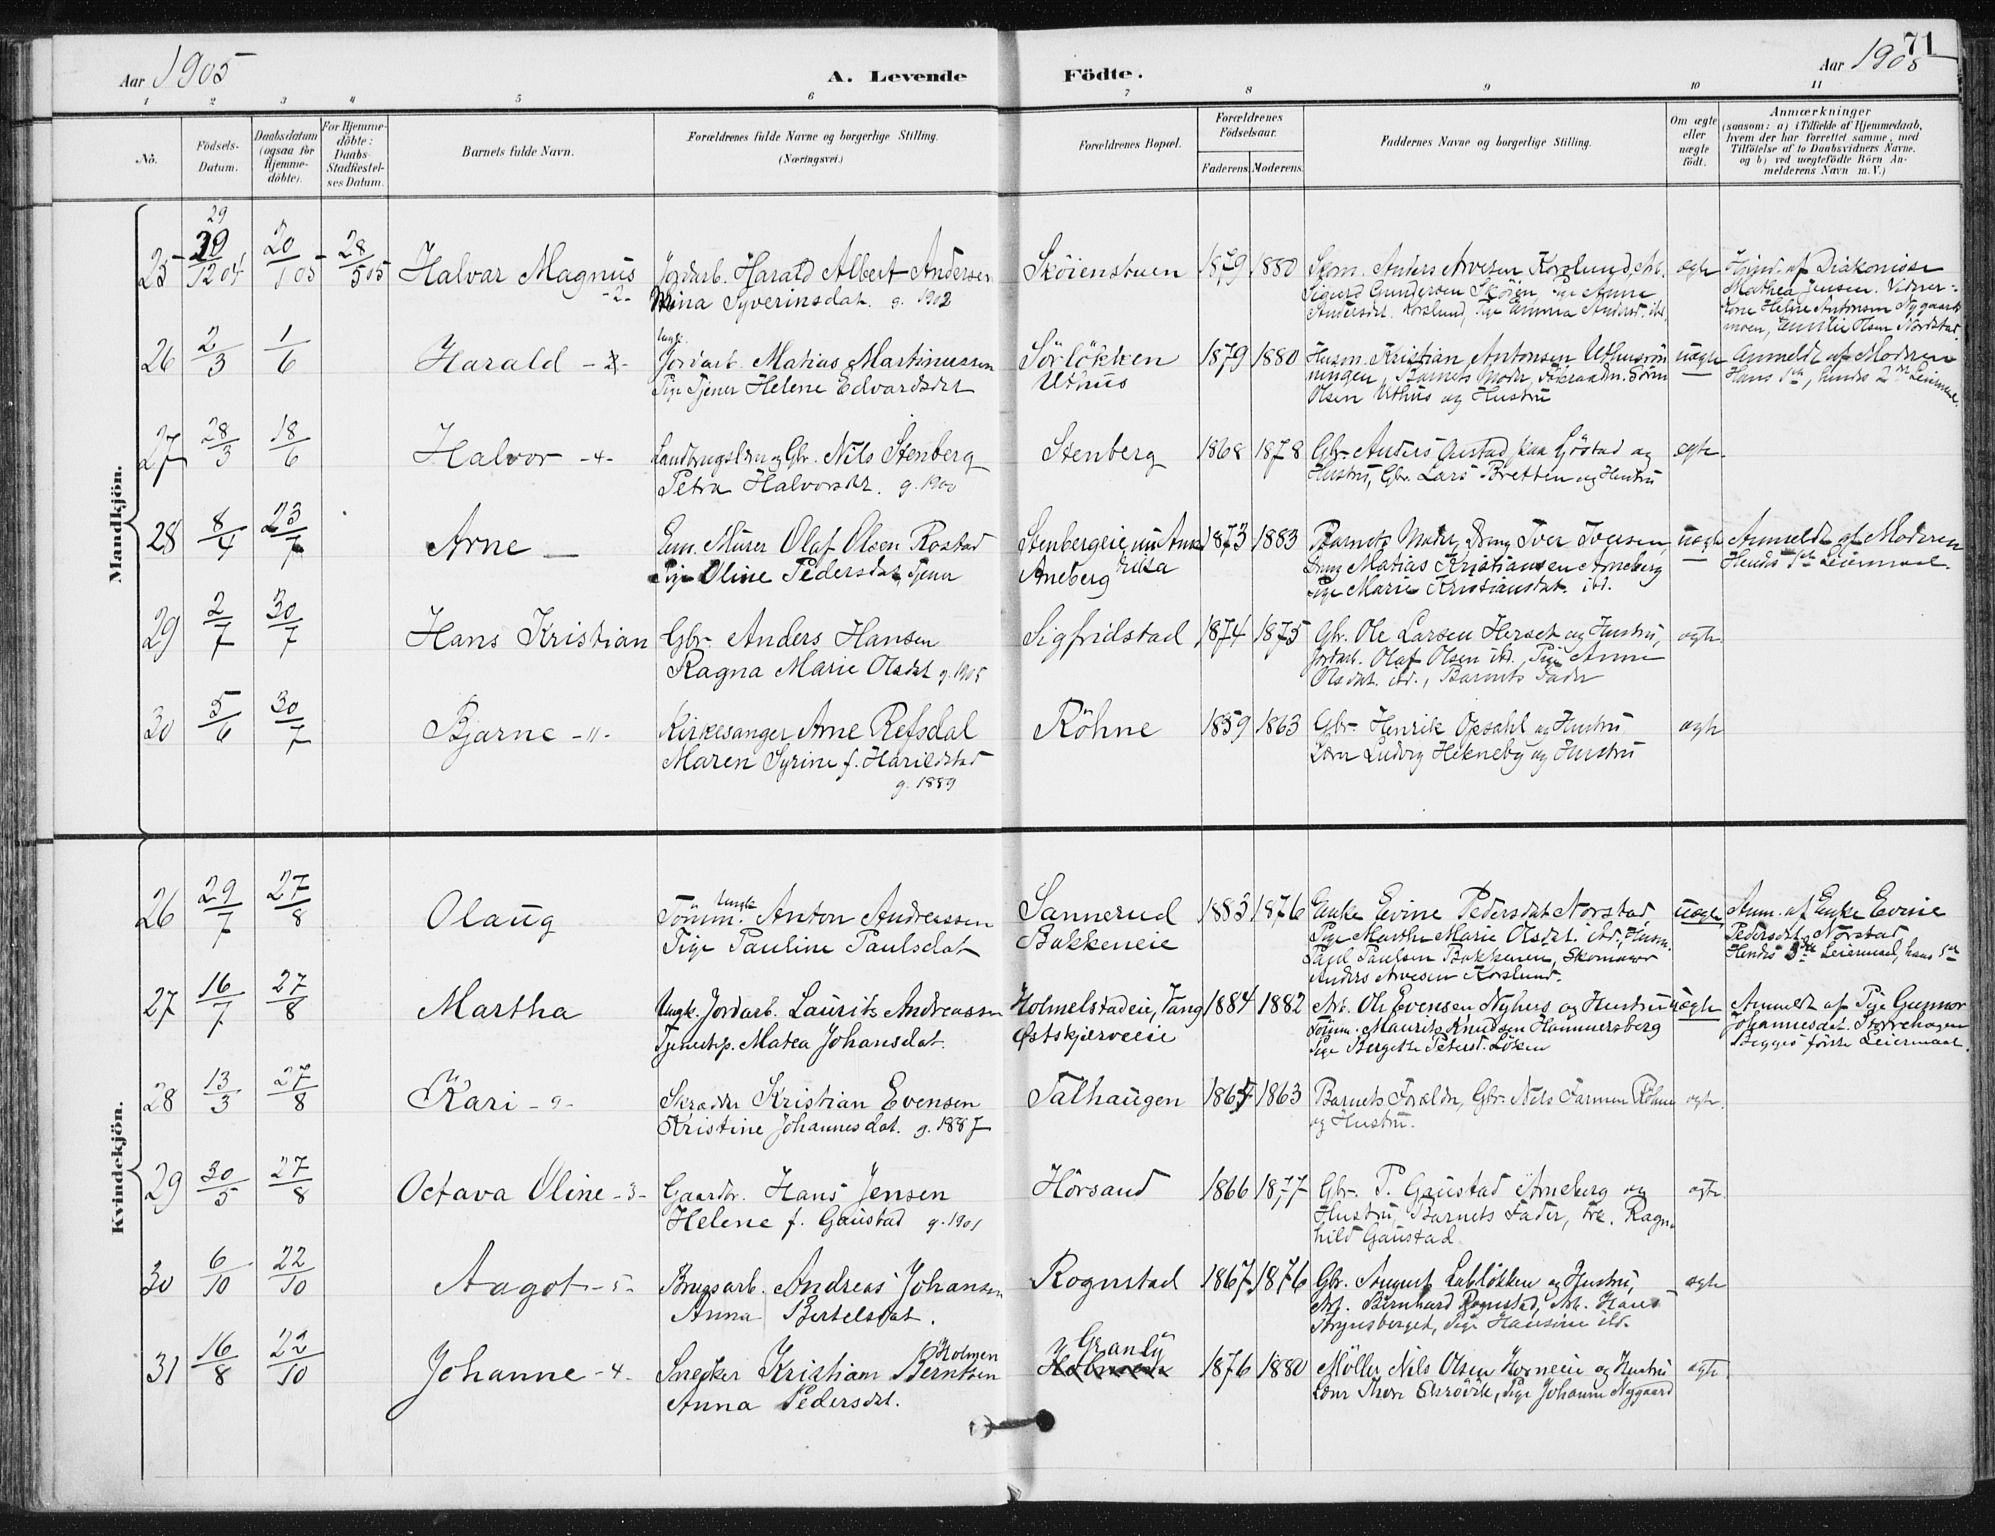 71
Aar 1905
A. Levende Födte.
Aar 1905
1 2 3 4 5 6 7 8 9 10 11
No.
Födsels-
Datum.
Daabsdatum
(ogsaa for
Hjemme-
döbte).
For Hjemme-
döbte:
Daabs-
Stadfæstel-
ses Datum.
Barnets fulde Navn.
Forældrenes fulde Navne og borgerlige Stilling.
(Næringsvei.)
Forældrenes Bopæl.
Forældrenes
Födselsaar.
Faderens. Moderens.
Faddernes Navne og borgerlige Stilling.
Om ægte
eller
uægte
født.
Anmærkninger
(saasom: a) i Tilfælde af Hjemmedaab,
hvem der har forrettet samme, med
Tilföielse af to Daabsvidners Navne,
og b) ved uægtefödte Börn An-
melderens Navn m. V.)
Mandkjön.
25 29 30/12 04 20/1 05 28/5 05 Halvar Magnus -2-
Jordarb. Harald Albert Andersen
Mina Syverinsdat. g. 1902
Sköienstuen 1879 1880
Skom. Anders Arvesen Korslund, Arb.
Sigurd Gundersen Sköien, Pige Anne
Andersdt. Korslund, Pige Emma Andersd. ibd.
ægte
Hjmd. af Diakonisse
Mathea Jensen. Vidner:
Kone Helene Antonsen Nygaards
moen, Emilie Olsen Nordstad
26 2/3 1/6 Harald
Ungk.
Jordarb. Matias Martinussen
Pige Tjener Helene Edvardsdat
Sörlökken
Uthus
1879 1880
Husm. Kristian Antonsen Uthusrön
ningen, Barnets Moder, Sören
Olsen Uthus og Hustru
uægte
Anmeldt af Moderen
Hans 1ste, hendes 2det Leiermaal.
27 28/3 18/6 Halvor -4-
Landbrugslærer og Gbr. Nils Stenberg
Petra Halvorsdt. g. 1900
Stenberg 1868 1878
Gbr. Anders Gustad paa Gjöstad og
Hustru, Gbr. Lars Bretten og Hustru
ægte.
28 8/4 23/7 Arne
Em. Murer Olaf Olsen Rostad
Pige Oline Pedersdat, Tjener
Stenbergeie nu Amerika
Arneberg
1873 1883
Barnets Moder, Dreng Iver Iversen,
Dreng Matias Kristiansen Arneberg
Pige Marie Kristiansdat. ibd.
uægte
Anmeldt af Moderen
Hendes 1ste Leiermaal.
29 2/7 30/7 Hans Kristian
Gbr. Anders Hansen
Ragna Marie Olsdat g. 1905
Sigfridstad 1874 1875
Gbr. Ole Larsen Herset og Hustru,
Jordarb. Olaf Olsen ibd., Pige Anne
Olsdat. ibd., Barnets Fader
ægte.
30 5/6 30/7 Bjarne -11-
Kirkesanger Arne Refsdal
Maren Syrine f. Harildstad
g. 1889
Röhne 1859 1863
Gbr. Henrik Opsahl og Hustru
Lærer Ludvig Hekneby og Hustru
ægte
Kvindekjön.
26 29/7 27/8 Olaug
Ungk.
Tömm. Anton Andreassen
Pige Pauline Paulsdat
Sannerud
Bakkeneie
1883 1876
Enke Evine Pedersdat Norstad
Pige Marthe Marie Olsdat. ibd., Husm.
Paul Paulsen Bakkeneie, Skomager
Anders Arvesen Korslund.
uægte
Anm. af Enke Evine
Pedersdt. Norstad,
Hendes 3die Leiermaal, hans 1ste
27 16/7 27/8 Martha
Ungk. Jordarb. Laurits Andreassen
Tjenestep. Matea Johansdat.
Holmelstadeie, Vang
Østskjærveeie
1884 1882
Arb. Ole Evensen Nyhus og Hustru
Tömm. Maurits Knudsen Hammersberg
Pige Bergette Petersd. Löken
uægte
Anmeldt af Pige Gunnor
Johannesdat. Storrehagen
Begges förste Leiermaal.
28 13/3 27/8 Kari -9-
Skrædder Kristian Evensen
Kristine Johannesdat. g. 1887
Talhaugen 1864 1863
Barnets Forældre, Gbr. Nils Farmen Röhne
og Hustru.
ægte.
29 30/5 27/8 Octava Oline -3-
Gaardbr. Hans Jensen
Helene f. Gaustad g. 1901
Hörsand 1866 1877
Gbr. P. Gaustad Arneberg og
Hustru, Barnets Fader, Frk. Ragn-
hild Gaustad
ægte.
30 6/10 22/10 Aagot -5-
Brugsarb. Andreas Johansen
Anna Bertelsdat.
Rognstad 1867 1876
Gbr. August Labløkken og Hustru,
Arb. Bernhard Rognstad, Arb. Hans
Brynsberget, Pige Hansine ibd.
ægte
31 16/8 22/10 Johanne -4-
Snedker Kristian Berntsen Holmen
Anna Pedersdt.
Granly
1876 1880
Møller Nils Olsen Horneeie og Hustru
Lærer Thore Skrövik, Pige Johanne Nygaard
ægte.